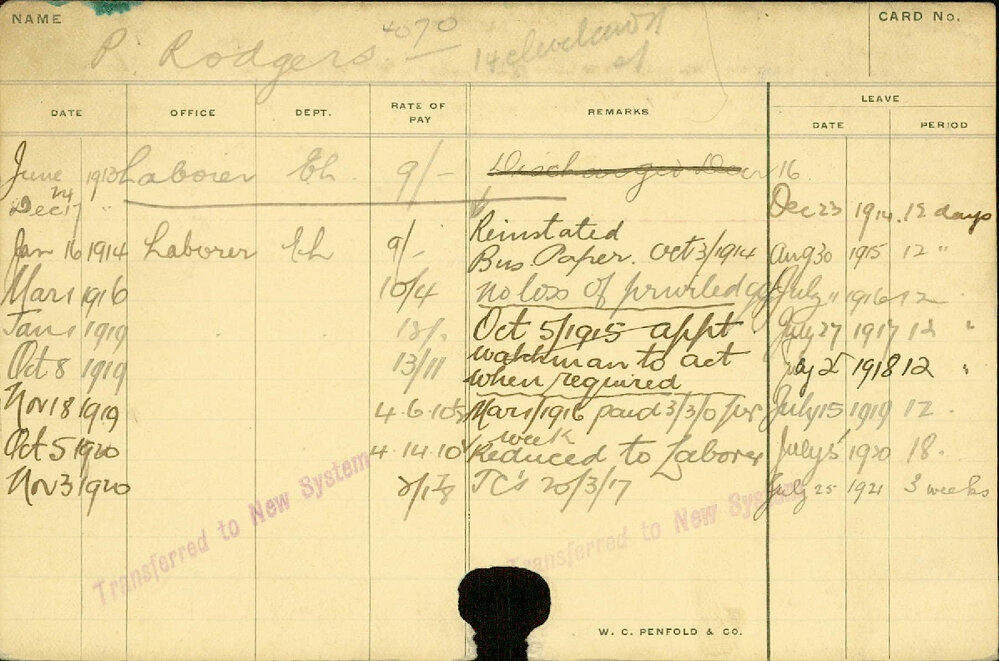 NAME
CARD No.
P Rodgers 4070 14 Cleveland St
DATE OFFICE DEPT. RATE OF PAY REMARKS LEAVE
DATE PERIOD
June 24 1913 Laborer Eh 9/- Discharged Decr 16.
Dec 17 " Dec 23 1914 12 days
Reinstated
Jan 16 1914 Laborer Eh 9/- Bus. Paper. Oct 3/1914 Aug 30 1915 12 "
Mar 1 1916 10/4 no loss of priviledges July 11 1916 12
Jan 1 1919 Oct 5/1915 appt July 27 1917 12 "
Oct 8 1919 13/11 watchman to act July 25 1918 12 "
when required
Nov 18 1919 4.6.10½ Mar 1/1916 paid 3/3/0 per July 15 1919 12 .
week
Oct 5 1920 4.14.10½ Reduced to Laborer July 5 1920 18.
Nov 3 1920 TC's 20/3/17 July 25 1921 3 weeks
Transferred to New System
Transferred to New System
W. C. PENFOLD & CO.